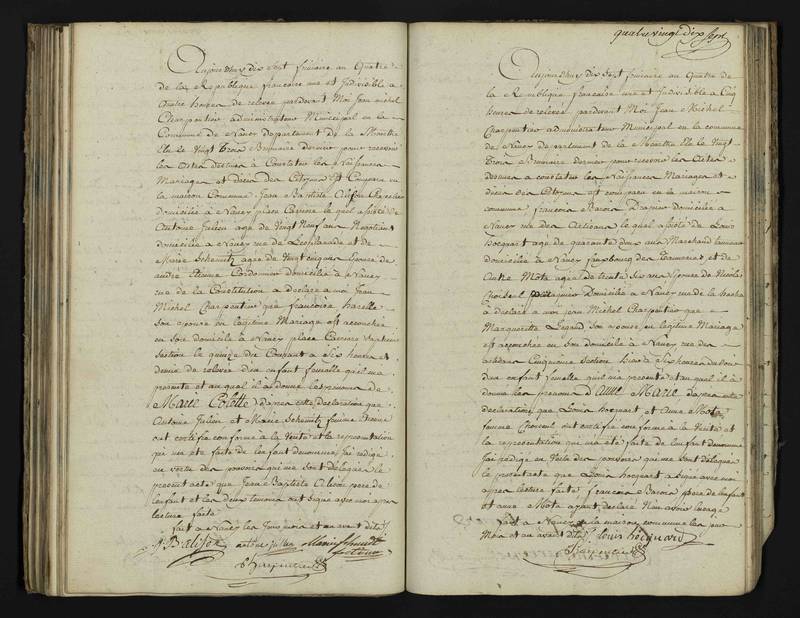 Aujourd'huy dix sept frimaire an Quatre
de la Republique francaise une et Indivisible a
Quatre heures de relevee pardevant Moi Jean michel
Charpentier administrateur Municipal en la
Commune de Nancy Departement de la Meurthe
Elu le Vingt Trois Brumaire dernier pour recevoir
les actes destinés à Constater les Naissances
Mariages et décès des Citoyens Est Comparu en
la maison Commune Jean Baptiste
domicilié a Nancy place Cariere lequel assisté de
Antoine Julien agé de Vingt Neuf ans Negotiant
domicilié a Nancy rue de Lesplanade et de
Marie agée de Vingt ans Epouse de
andré Etienne Cordonnier Domicilié a Nancy
rue de la Constitution a declaré a moi Jean
Michel Charpentier que francoise
son epouse en légitime Mariage est accouchée
en son domicile a Nancy place Cariere
Section le quinze du Courant a Six heures et
demie de relevee d'un enfant femelle qu'il ma
presenté et au quel il a donné les prénoms de
Marie Colette d'apres cette declaration que
Antoine Julien et Marie femme Etienne
ont certifié conforme à la Verité et la representation
qui ma eté faite de l'enfant denommé, j'ai redigé
en vertu des pouvoirs qui me sont délégués le
present acte que Jean Baptiste pere de
l'enfant et les deux temoins ont signé avec moi apres
lecture faite
fait a Nancy les jour mois et an avant dits
antoine julien
Charpentier
quatre vingt dix sept
Aujourd'huy dix sept frimaire an Quatre de
la Republique francaise une et indivisible a Cinq
heures de relevee pardevant Moi Jean Michel
Charpentier administrateur Municipal en la commune
de Nancy departement de la Meurthe Elu le Vingt
Trois Brumaire dernier pour recevoir les Actes
destinés a constater les Naissances Mariages et
décès des Citoyens est comparu en la maison
commune francois Baron Drapier domicilié a
Nancy rue des Artisans lequel assisté de Louis
Hocquart agé de quarante deux ans Marchand tanneur
domicilié a Nancy fauxbourg des Tanneries et de
Anne Mota agée de trente six ans Epouse de Nicolas
Choiseul Domicilié a Nancy rue de la
a declaré a moi jean Michel Charpentier que
Marguerite Legand Son epouse en légitime Mariage
est accouchée en son domicile a Nancy rue des
artisans Cinquieme Section hier a Six heures du soir
d'un enfant femelle qu'il ma presenté et au quel il a
donné les prenoms d'Anne Marie, d'apres cette
declaration que Louis hocquart et Anne Mota
femme Choiseul ont certifié conforme a la Verité et
la representation qui ma eté faite de l'enfant denommé
j'ai rédigé en Vertu des pouvoirs qui me sont delegués
le présent acte que Louis hocquart a signé avec moi
apres lecture faite francois Baron pere de l'enfant
et anne Mota ayant declaré Non avoir l'usage
fait a Nancy en la maison commune les jour
Mois et an avant dits louis hocquard
Charpentier